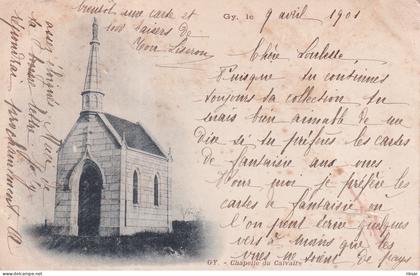 bientôt une carte et
bons baisers de
Ton Liseron
Gy, le 9 avril 1901
Chère Loulette
Puisque tu continues
toujours ta collection tu
serais bien aimable de me
Dire si tu préfères les cartes
de fantaisie aux vues
Pour moi je préfère les
cartes de fantaisie et
l'on peut écrire quelques
vers à moins que les
vues ne soient de pays
assez éloignés
répondrai prochainement
GY. - Chapelle du Calvaire